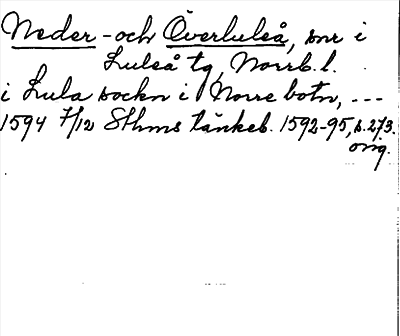 Neder- och Överluleå, snr i
Luleå tg, Norrb. l.
i Lula sockn i Norre botn, ---
1594 7/12 Sthms tänkeb. 1592-95, s. 273.
orig.